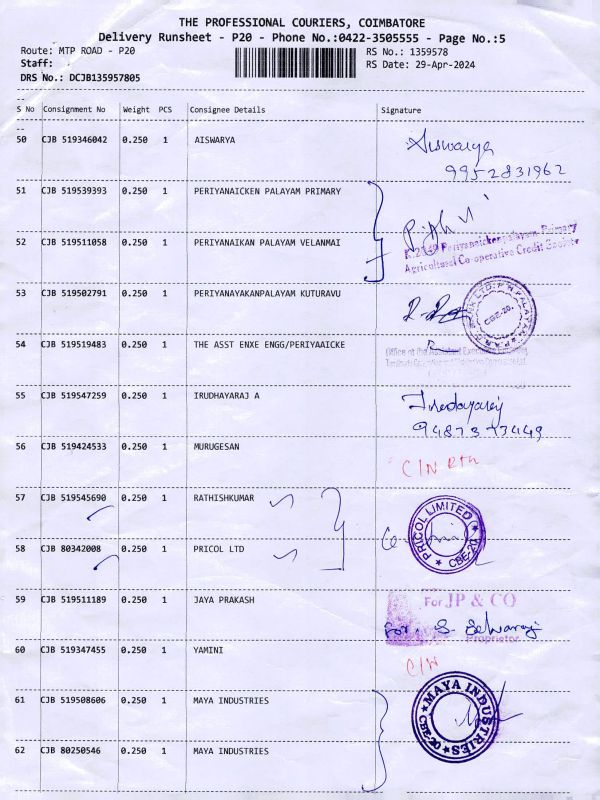 THE PROFESSIONAL COURIERS, COIMBATORE
Delivery Runsheet - P20 - Phone No.:0422-3505555 - Page No.:5
Route: MTP ROAD - P20 RS No.: 1359578
Staff: RS Date: 29-Apr-2024
DRS No.: DCJB135957805
S No Consignment No Weight PCS Consignee Details Signature
50 CJB 519346042 0.250 1 AISWARYA Aiswarya
9952831962
51 CJB 519539393 0.250 1 PERIYANAICKEN PALAYAM PRIMARY
K.2149 Periyanaickenpalayam Primary
52 CJB 519511058 0.250 1 PERIYANAIKAN PALAYAM VELANMAI
Agricultural Co-operative Credit Society
53 CJB 519502791 0.250 1 PERIYANAYAKANPALAYAM KUTURAVU
CBE-20.
54 CJB 519519483 0.250 1 THE ASST ENXE ENGG/PERIYAAICKE
Office of the Assistant
55 CJB 519547259 0.250 1 IRUDHAYARAJ A Irudayaraj
56 CJB 519424533 0.250 1 MURUGESAN
C/N
57 CJB 519545690 0.250 1 RATHISHKUMAR
PRICOL LIMITED
CBE-20
58 CJB 80342008 0.250 1 PRICOL LTD
59 CJB 519511189 0.250 1 JAYA PRAKASH For JP & CO
For. S. Selvaraj
Proprietor
60 CJB 519347455 0.250 1 YAMINI C/N
61 CJB 519508606 0.250 1 MAYA INDUSTRIES
MAYA INDUSTRIES
CBE-20
62 CJB 80250546 0.250 1 MAYA INDUSTRIES